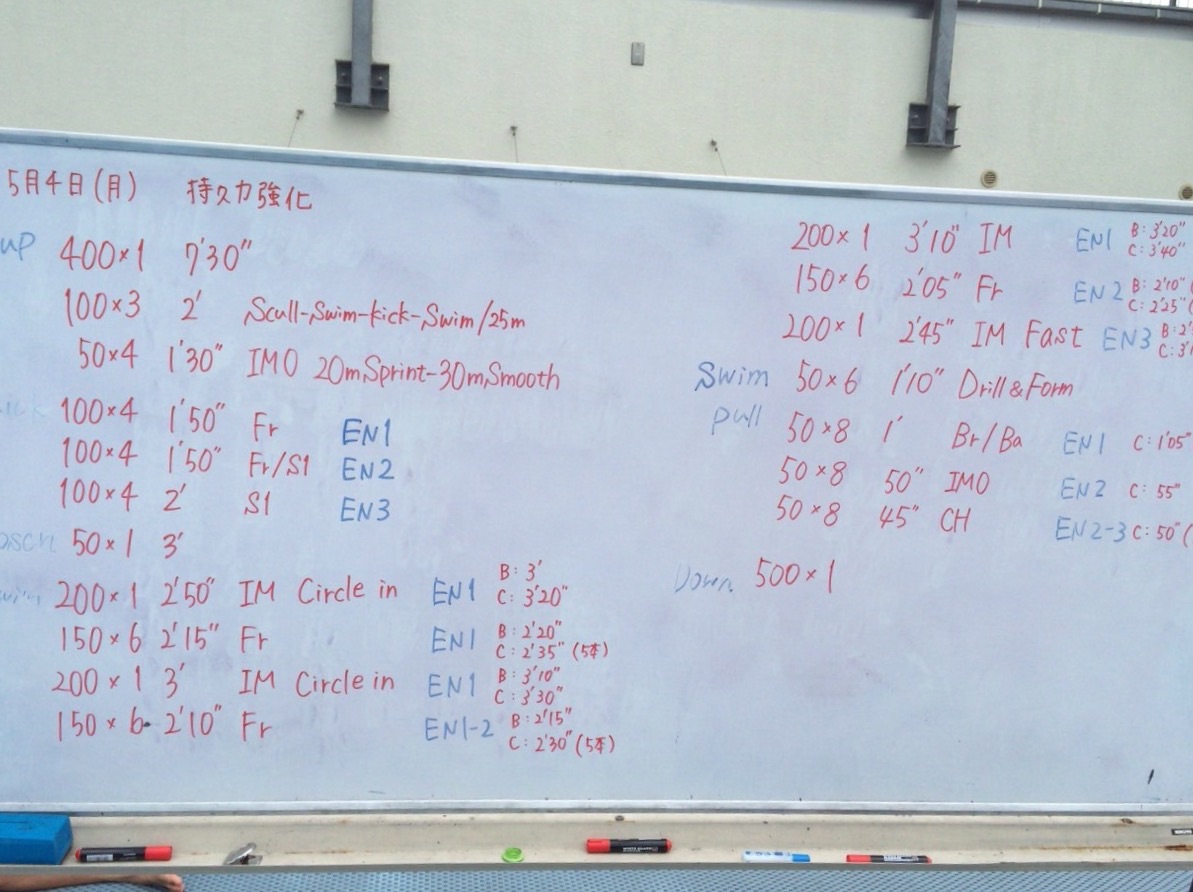 5月4日(月) 持久力強化
up 400×1 7'30"
100×3 2' Scull-Swim-kick-Swim/25m
50×4 1'30" IMO 20mSprint-30mSmooth
100×4 1'50" Fr EN1
100×4 1'50" Fr/S1 EN2
100×4 2' S1 EN3
50×1 3'
200×1 2'50" IM Circle in EN1 B:3' C:3'20"
150×6 2'15" Fr EN1 B:2'20" C:2'35"(5本)
200×1 3' IM Circle in EN1 B:3'10" C:3'30"
150×6 2'10" Fr EN1-2 B:2'15" C:2'30"(5本)
200×1 3'10" IM EN1 B:3'20" C:3'40"
150×6 2'05" Fr EN2 B:2'10" C:2'25"(
200×1 2'45" IM Fast EN3 B:2' C:3'
Swim 50×6 1'10" Drill&Form
pull 50×8 1' Br/Ba EN1 C:1'05"
50×8 50" IMO EN2 C:55"
50×8 45" CH EN2-3 C:50"(
Down 500×1